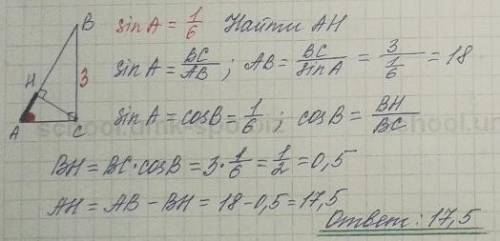 B
sin A = 1/6 Найти AH
H
3
sin A = BC/AB ; AB = BC/sin A = 3/(1/6) = 18
A
C
sin A = cos B = 1/6 ; cos B = BH/BC
BH = BC · cos B = 3 · 1/6 = 1/2 = 0,5
AH = AB − BH = 18 − 0,5 = 17,5
Ответ: 17,5